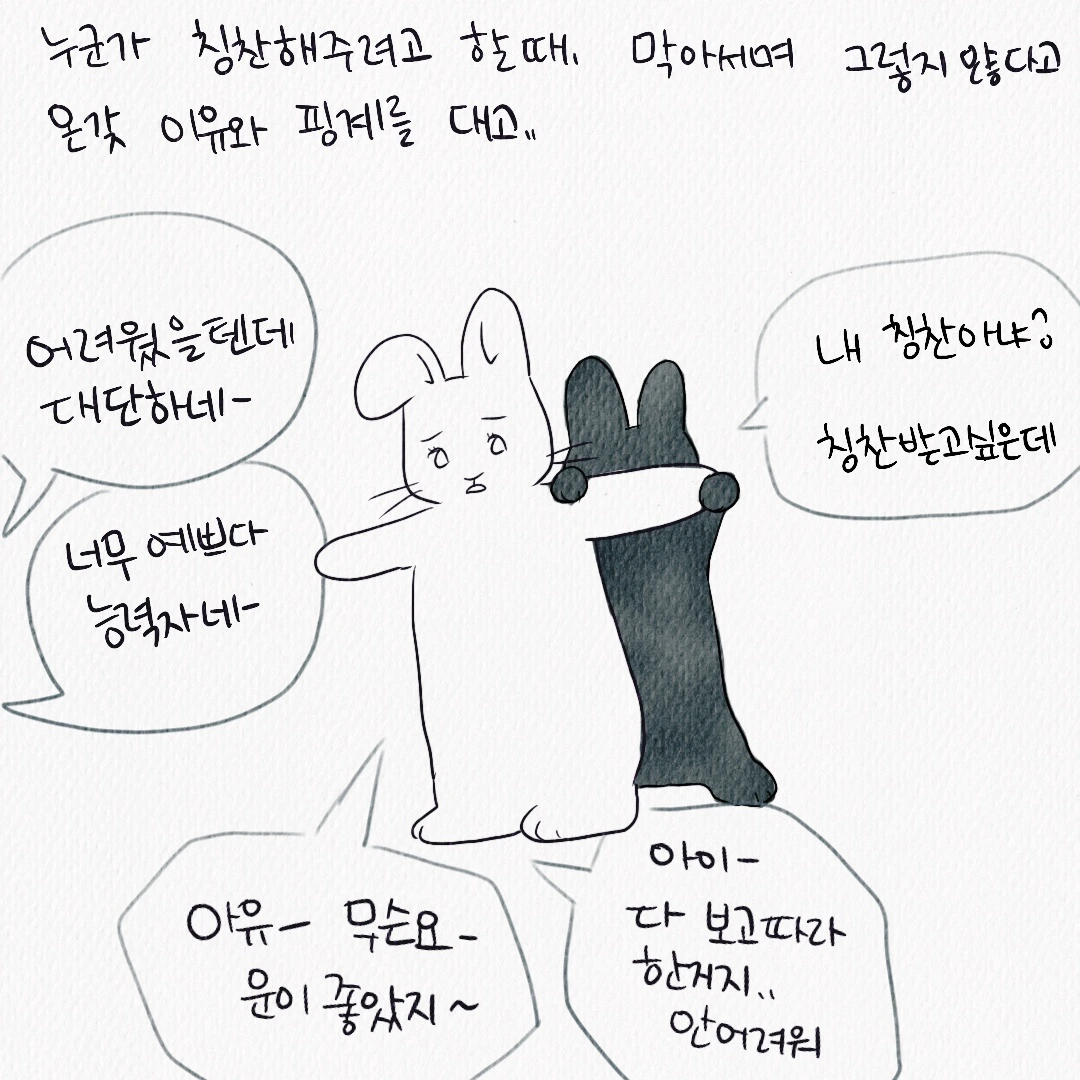 누군가 칭찬해주려고 할때, 막아서며 그렇지 않다고
온갖 이유와 핑계를 대고..
어려웠을텐데
대단하네-
내 칭찬이냐?
칭찬받고싶은데
너무 예쁘다
능력자네-
아유- 무슨요-
운이 좋았지~
아이-
다 보고따라
한거지..
안어려워